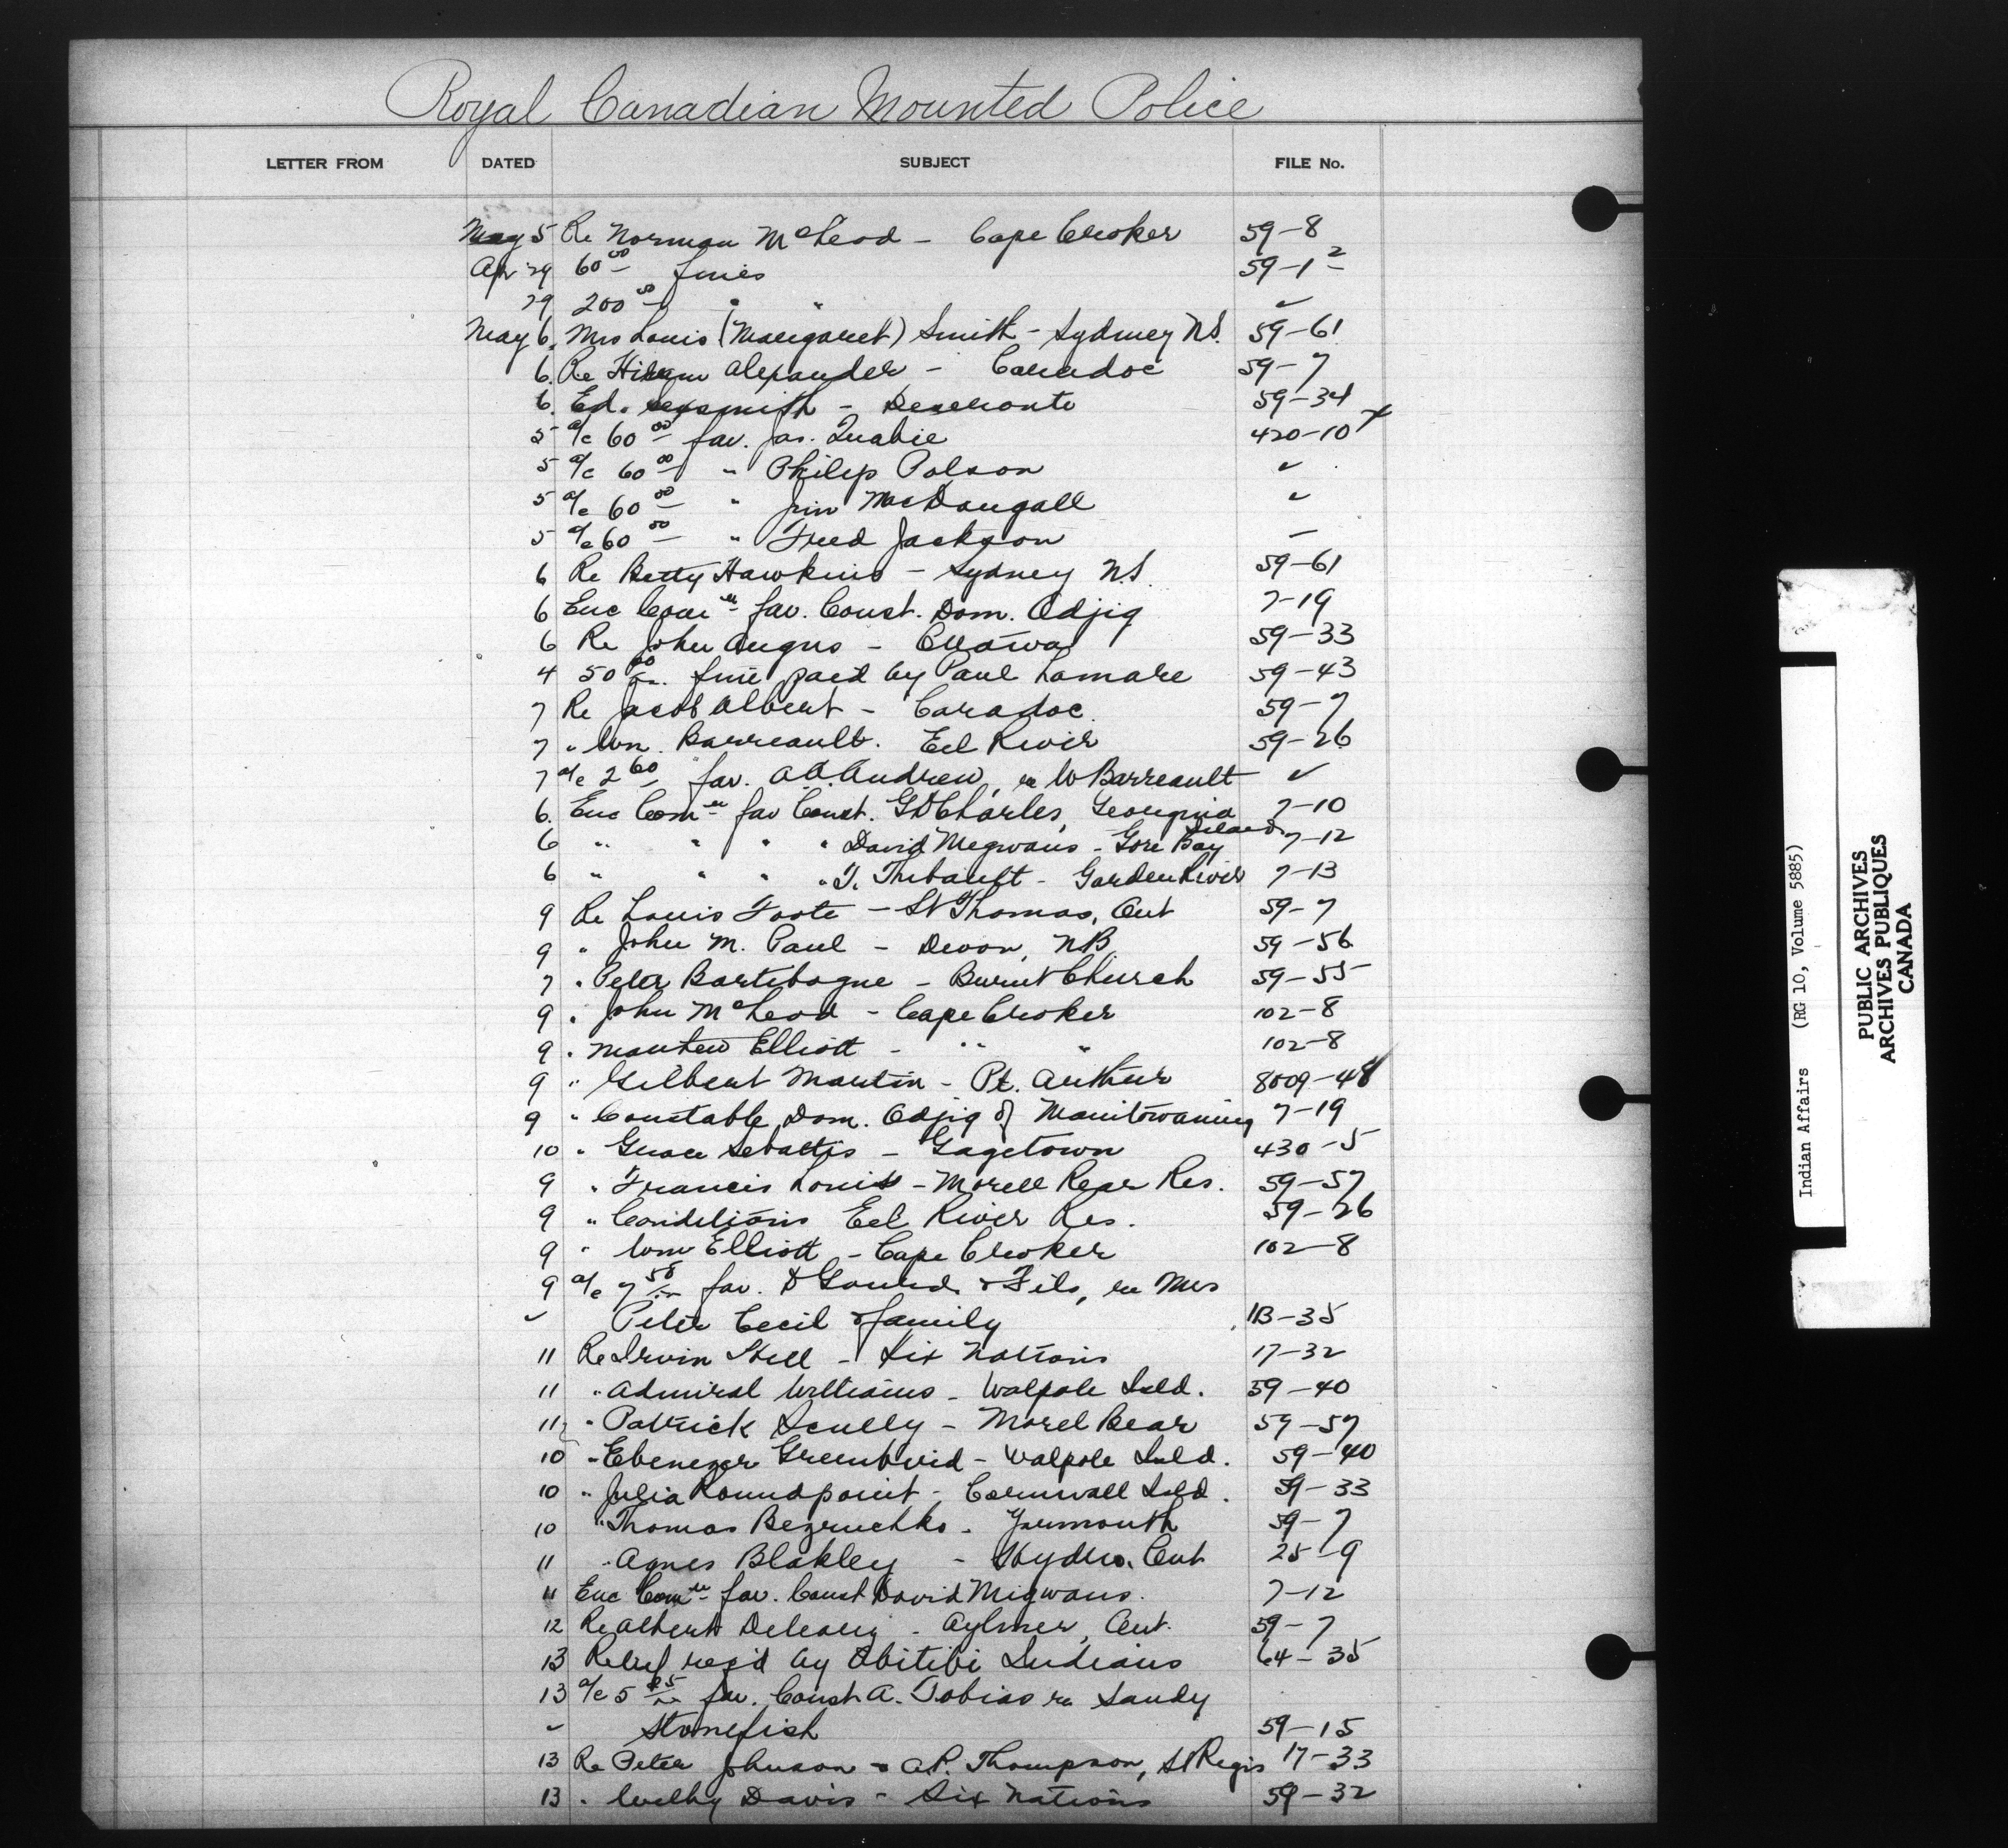 Royal Canadian Mounted Police
LETTER FROM DATED SUBJECT FILE No.
May 5 Re Norman McLeod - Cape Croker 59-8
Apr 29 60 00 fines 59-1-2
29 200 00 " " ✓
May 6. Mrs Louis (Margaret) Smith - Sydney N.S. 59-61
6. Re Hiram Alexander - Caradoc 59-7
6. Ed. Sexsmith - Deseronto 59-34
5 a/c 60 00 fav. Jas. Quabie 420-10 x
5 a/c 60 00 " Philip Polson ✓
5 a/c 60 00 " Jim MacDougall ✓
5 a/c 60 00 " Fred Jackson -
6 Re Betty Hawkins - Sydney N.S. 59-61
6 Enc Com n fav. Const. Dom. Odjig 7-19
6 Re John Angus - Ottawa 59-33
4 50 00 fine paid by Paul Lamare 59-43
7 Re Jacob Albert - Caradoc. 59-7
7 " Wm. Barreault. Eel River 59-26
7 a/c 2 60 fav. A.A. Andrew, re W Barreault ✓
6. Enc Com n fav Const. G D Charles, Georgina Island 7-10
6 " " " " David Megwans - Gore Bay 7-12
6 " " " " T. Thibault - Garden River 7-13
9 Re Louis Foote - St Thomas, Ont 59-7
9 " John M. Paul - Devon, NB 59-56
7 " Peter Bartibogue - Burnt Church 59-55
9 " John McLeod - Cape Croker 102-8
9 " Mathew Elliott - " " 102-8
9 " Gilbert Martin - Pt. Arthur 8009-48
9 " Constable Dom. Odjig of Manitowaning 7-19
10 " Grace Sebattis - Gagetown 430-5
9 " Francis Louis - Morell Rear Res. 59-57
9 " Conditions Eel River Res. 59-26
9 " Wm Elliott - Cape Croker 102-8
9 a/c 7 50 fav. D Girard & Fils, re Mrs
✓ Peter Cecil & family 113-35
11 Re Irvin Hill - Six Nations 17-32
11 " Admiral Williams - Walpole Isld. 59-40
11 " Patrick Scully - Morel Rear 59-57
10 " Ebenezer Greenbird - Walpole Isld. 59-40
10 " Julia Roundpoint - Cornwall Isld. 59-33
10 " Thomas Bezruchko - Yarmouth 59-7
11 " Agnes Blakley - Hydro, Ont 25-9
11 Enc Com n fav. Const David Migwans. 7-12
12 Re Albert Deleary - Aylmer, Ont. 59-7
13 Relief req'd by Abitibi Indians 64-35
13 a/c 5 85 fav. Const A. Tobias re Sandy
✓ Stonefish 59-15
13 Re Peter Johnson & A.P. Thompson, St Regis 17-33
13 " Welby Davis - Six Nations 59-32
Indian Affairs (RG 10, Volume 5885)
PUBLIC ARCHIVES
ARCHIVES PUBLIQUES
CANADA